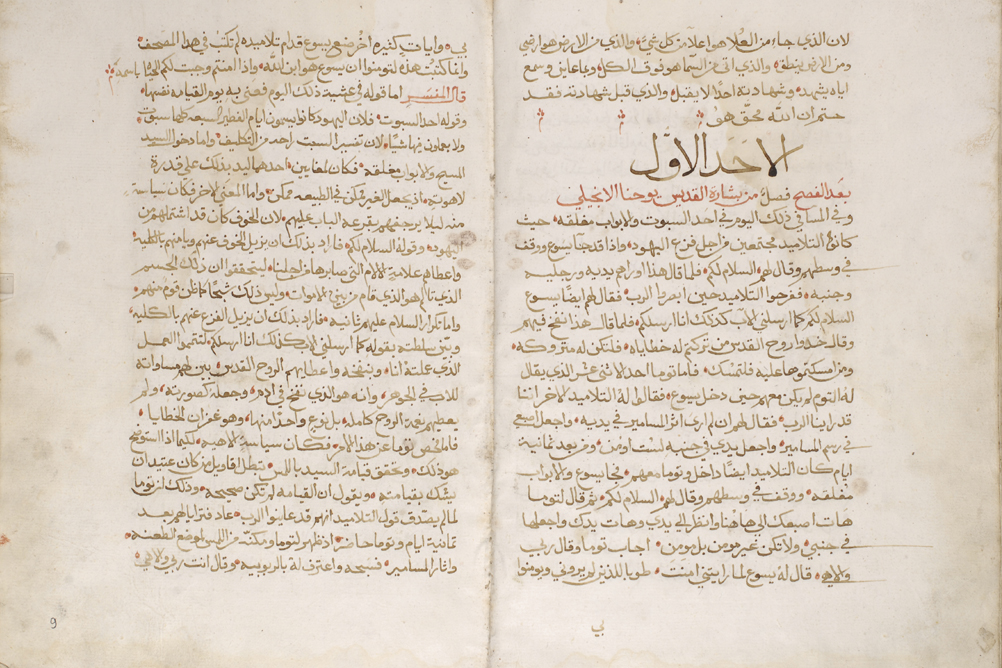 لان الذي جاء من العلا هو اعلا من كل شي والذي من الارض هو ارضي
ومن الارض ينطق والذي اتى من السما هو فوق الكل وبما عاين وسمع
اياه يشهد وشهادته احدا لا يقبل والذي قبل شهادته فقد
ختم ان الله محق هو
الاحد الاول
بعد الفصح فصل من بشارة القديس يوحنا الانجيلي
وفي المسا في ذلك اليوم في احد السبوت والابواب مغلقه حيث
كانوا التلاميد مجتمعين من اجل فزع اليهود واذا قد جا يسوع ووقف
في وسطهم وقال لهم السلام لكم فلما قال هذا اوراهم يديه ورجليه
وجنبه ففرحوا التلاميد حين ابصروا الرب فقال لهم ايضا يسوع
السلام لكم كما ارسلني الاب كذلك انا ارسلكم فلما قال هذا نفخ فيهم
وقال خدوا روح القدس من تركتم له خطاياه فلتكن له متروكه
ومن مسكتموها عليه فلتمسك فاما توما احد الاثني عشر الذي يقال
له التوم لم يكن معهم حين دخل يسوع فقالوا له التلاميد الاخر اننا
قد راينا الرب فقال لهم ان لم ارى اثر المسامير في يديه واجعل اصبعي
في رسم المسامير واجعل يدي في جنبه لست اومن ومن بعد ثمانية
ايام كان التلاميد ايضا داخل وتوما معهم فجا يسوع والابواب
مغلقه ووقف في وسطهم وقال لهم السلام لكم ثم قال لتوما
هات اصبعك الى هاهنا وانظر الى يدي وهات يدك واجعلها
في جنبي ولا تكن غير مومن بل مومن اجاب توما وقال ربي
والاهي قال له يسوع لما رايتني امنت طوبا للذين لم يروني ويومنوا
بي
بي وايات كثيره اخر صنع يسوع قدام تلاميده لم تكتب في هدا المصحف
وانما كتبت هذه لتومنوا ان يسوع هو ابن الله واذا امنتم وجبت لكم الحياه باسمه
قال المفسر اما قوله في عشية ذلك اليوم فعنى به يوم القيامه نفسها
وقوله احد السبوت فلان اليهود كانوا يسمون ايام الفطير السبعه كلها سبوت
ولا يعملون فيها شيا لان تفسير السبت راحه من التكليف واما دخول السيد
المسيح والابواب مغلقه فكان لمعنايين احدهما ليد بذلك على قدرة
لاهوته اذ يجعل الغير ممكن في الطبيعه ممكن واما المعنى الاخر فكان سياسة
منه ليلا يرجفهم بقرعه الباب عليهم لان الخوف كان قد اشتملهم من
اليهود وقوله السلام لكم فاراد بذلك ان يزيل الخوف عنهم ويامنهم بالكليه
واعطاهم علامة الالام التي صابرها من اجلنا ليتحققوا ان ذلك الجسم
الذي تالم هو الذي قام من بين الاموات وليس ذلك شبحا كما ظن قوم منهم
واما تكرار السلام عليهم ثانية فاراد بذلك ان يزيل الفزع عنهم بالكليه
وبين سلطته بقوله كما ارسلني الاب كذلك انا ارسلكم لتتموا العمل
الذي عملته انا وبنفخه واعطايهم الروح القدس بين لهم مساواته
للاب في الجوهر وانه هو الذي نفخ في ادم وجعله كصورته ولم
يعطهم نعمة الروح كامله بل نوع واحد منها وهو غفران الخطايا
فاما فحص توما عن هذا الامر فكان سياسة الاهيه لكيما اذا استوضح
هو ذلك وتحقق قيامة السيد باللمس تبطل اقاويل من كان عتيد ان
يشك بقيامته ويقول ان القيامه لم تكن صحيحه وذلك ان توما
لما لم يصدق قول التلاميد انهم قد عاينوا الرب عاد فترايا لهم بعد
ثمانية ايام وتوما حاضر اذ ظهر لتوما ومكنه من اللمس لموضع الطعنه
واثار المسامير فسبحه واعترف له بالربوبيه وقال انت ربي والاهي
9